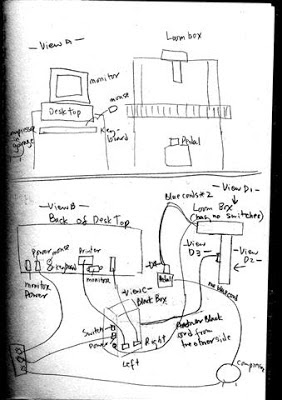 - View A -
Loom box
monitor
mouse
DeskTop
Key-
board
Compressor
garage
Pedal
- View B -
Back of DeskTop
Blue cords * 2
- View D1 -
Loom Box
(has no switches)
Power
mouse
Keyboard
Printer
monitor
monitor
Power
- View
D3 -
- View
D2 -
Pedal
- View C -
Black Box
Switch
Power
Left
Right
cord from
the other side
Compressor